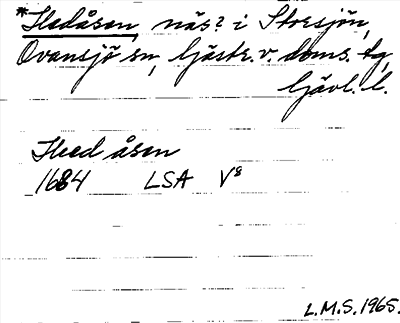 *Hedåsen, näs? i Storsjön,
Ovansjö sn, Gästr. v. doms. tg,
Gävl. l.
Heed åsen
1684 LSA V⁸
L.M.S. 1965.